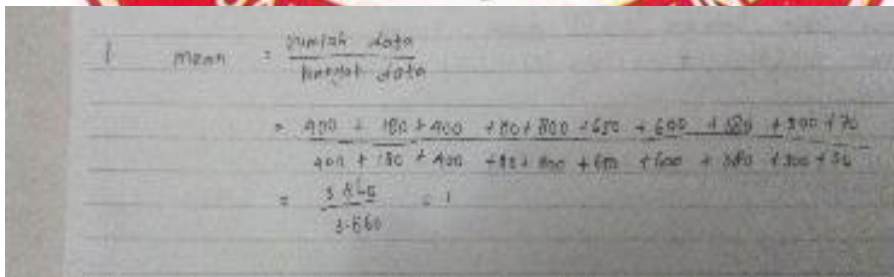 1 mean = Jumlah data
banyak data
= 400 + 180 + 400 + 80 + 800 + 650 + 600 + 380 + 300 + 70
400 + 180 + 400 + 80 + 800 + 650 + 600 + 380 + 300 +
= = 1